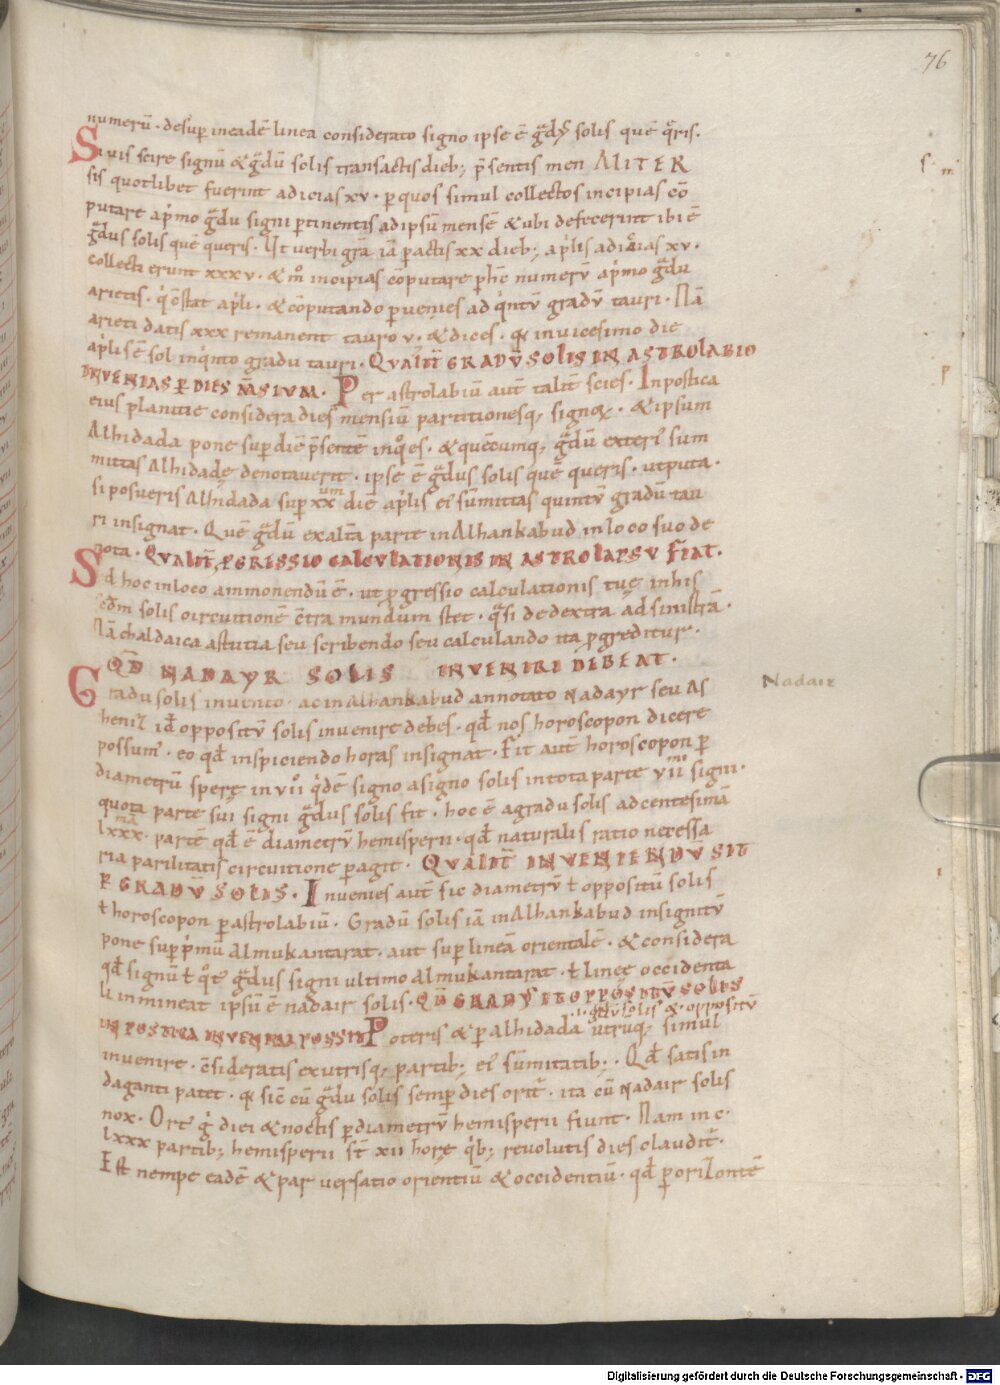 76
numerū · desup̄ ineadē linea considerato signo ipse ē gͣdꝰ solis quē qͥris·
Si uis scire signū &gͣdū solis transactis dieb; p̄sentis men ALITER
sis quotlibet fuerint adicias xv · ꝑ quos simul collectos incipias cō
putare apͥmo gͣdu signi ꝑtinentis adipsū mensē &ubi defecerint ibi ē
gͣdus solis quē queris · Ut verbi grā iā ꝑactis xx dieb; apͥlis adicias xv ·
collecti erunt xxxv · &mͦ incipias cōputare ꝑ hc̄ numerv apͥmo gͣdu
arietis · qͥ cstat apͥli · &cōputando ꝑuenies ad qͥntv̄ gradv̄ tauri · Nā
arieti datis xxx remanent tauro v · &dices · qͥ invicesimo die
apͥlis ē sol inqͥnto gradu tauri · QVALIT̄ GRADV̄ SOLIS IN ASTROLABIO
INVENIAS ꝑ DIES M̄SIVM · Per astrolabiū aut̄ talit̄ scies · Inpostica
eius planitie considera dies mensiū partitionesq; signoꝝ · &ipsum
Alhidada pone sup̄ diē p̄sentē inqͦ es · &quēcumq; gͣdū exterꝰ sum
mittas Alhidadę denotauerit · ipse ē gͣdus solis quē queris · utputa ·
si posueris Alhidada sup̄ xxum diē apͥlis eiꝰ sūmittas quintv̄ gradū tau
ri insignat · Quē gͣdū exalta parte in Alhankabud inloco suo de
nota · QVALIT̄ PGRESSIO CALCVLATIONIS IN ASTROLAPSV FIAT ·
Sed hoc inloco ammonendū ē · ut ꝓgressio calculationis tuę inhis
scdm solis circuitionē c̄tra mundum stet · qͣsi dedextra ad sinistrā ·
Nā chaldaica astutia seu scribendo seu calculando ita ꝓgreditur ·
QD̄ NADAYR SOLIS INVENIRI DEBEAT ·
Gradu solis inuento · ac in Alhankabud annotato Nadayr seu As
heniꝉ id̄ oppositv̄ solis inuenire debes · qd̄ nos horoscopon dicere
possumꝰ · eo qd̄ inspiciendo horas insignat · Fit aut̄ horoscopon ꝑ
diametrū sperę in vııͦ qͥdē signo asigno solis intota parte vıımͦ signi ·
quota parte sui signi gͣdus solis fit · hoc ē agradu solis adcentesimā
lxxxmā · partē qd̄ ē diametrv̄ hemisperii · qd̄ naturalis ratio necessa
ria parilitatis circuitione ꝑagit · QVALIT̄ INVENIENDVS SIT
ꝑ GRADV̄ SOLIS · Inuenies aut̄ sic diametrv̄ ł oppositū solis
ł horoscopon ꝑ astrolabiū · Gradū solis iā in Alhankabud insignitv̄
pone sup̄ pͥmū Almukantarat · aut sup̄ lineā orientalē · &considera
qd̄ signū ł qͦtꝰ gͣdus signi ultimo Almukantarat · ł lineę occidenta
li immineat ipsū ē nadair solis · QD̄ GRADV̄ ET OPPOSITV̄ SOLIS
·i· gͣdū solis &· oppositv̄
IN POSTICA INVENIRI POSSIT Poteris &ꝑ Alhidada utruq; simul
inuenire · c̄sideratis exutrisq; partib; eiꝰ sūmitatib; · Qd̄ satis in
daganti patet · qͥ sic̄ cū gͣdu solis semp̄ dies orit̄ · ita cū Nadair solis
nox · Ortꝰ gͥ diei &noctis ꝑ diametrv̄ hemisperii fiunt · Nam in c ·
lxxx partib; hemisperii st̄ xıı horę qͥb; reuolutis dies claudit̄ ·
Est nempe eadē &par versatio orientiū &occidentiū · qd̄ ꝑ orizontē
Nadair
Digitalisierung gefördert durch die Deutsche Forschungsgemeinschaft - DFG